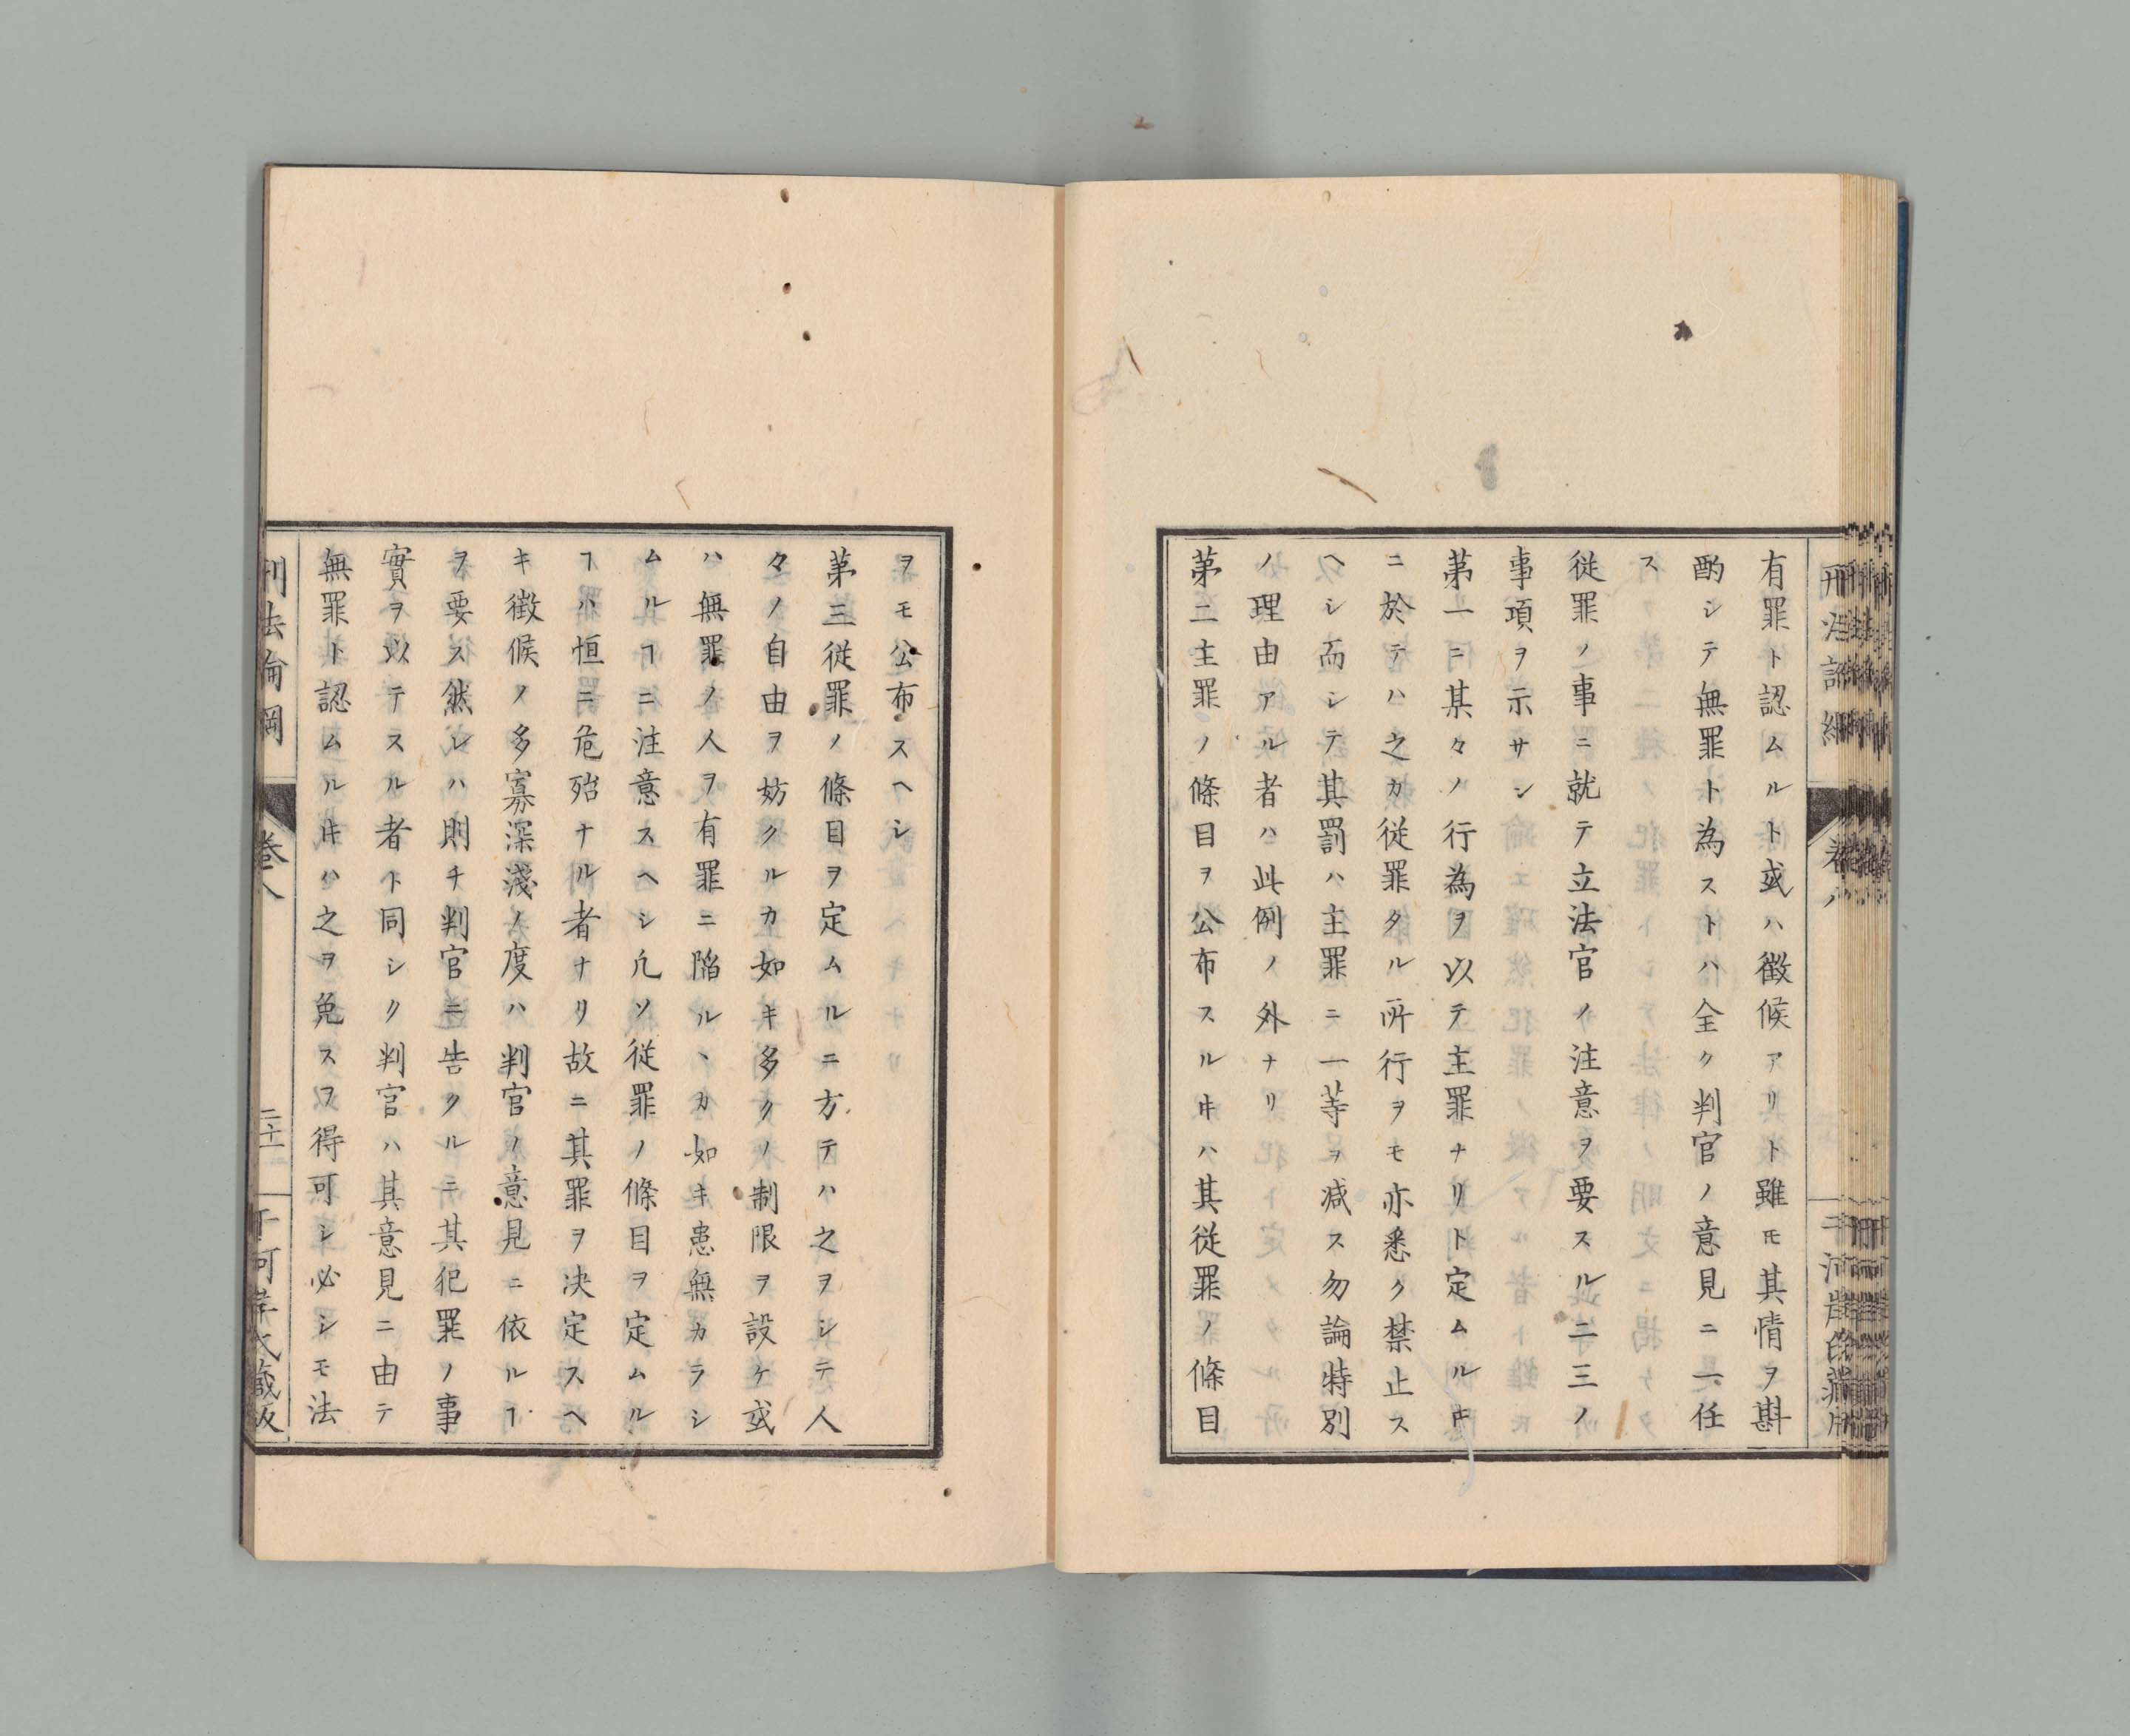 有罪ト認ムルト或ハ徴候アリト雖モ其情ヲ斟
酌シテ無罪ト為ストハ全ク判官ノ意見ニ一任
ス
従罪ノ事ニ就テ立法官ノ注意ヲ要スル此ニ三ノ
事項ヲ示サン
第一ニ某々ノ行為ヲ以テ主罪ナリト定ムルㇳキ
ニ於テハ之カ従罪タル所行ヲモ亦悉ク禁止ス
ヘシ而シテ其罰ハ主罪ニ一等ヲ減ス勿論特別
ノ理由アル者ハ此例ノ外ナリ
第二主罪ノ條目ヲ公布スル𪜈ハ其従罪ノ條目
ヲモ公布スヘシ
第三従罪ノ條目ヲ定ムルニ方テハ之ヲシテ人
々ノ自由ヲ妨クルカ如キ多クノ制限ヲ設ケ或
ハ無罪ノ人ヲ有罪ニ陥ルヽカ如キ患無カラシ
ムルヿニ注意スヘシ凡ソ従罪ノ條目ヲ定ムル
ヿハ恒ニ危殆ナル者ナリ故ニ其罪ヲ决定スヘ
キ徴候ノ多寡深淺ノ度ハ判官ノ意見ニ依ルヿ
ヲ要ス然レハ則チ判官ニ告クルニ其犯罪ノ事
實ヲ以テスル者ト同シク判官ハ其意見ニ由テ
無罪ト認ムル𪜈ハ之ヲ免スヲ得可シ必シモ法
刑法論綱
卷八
二十一
干河岸氏藏版